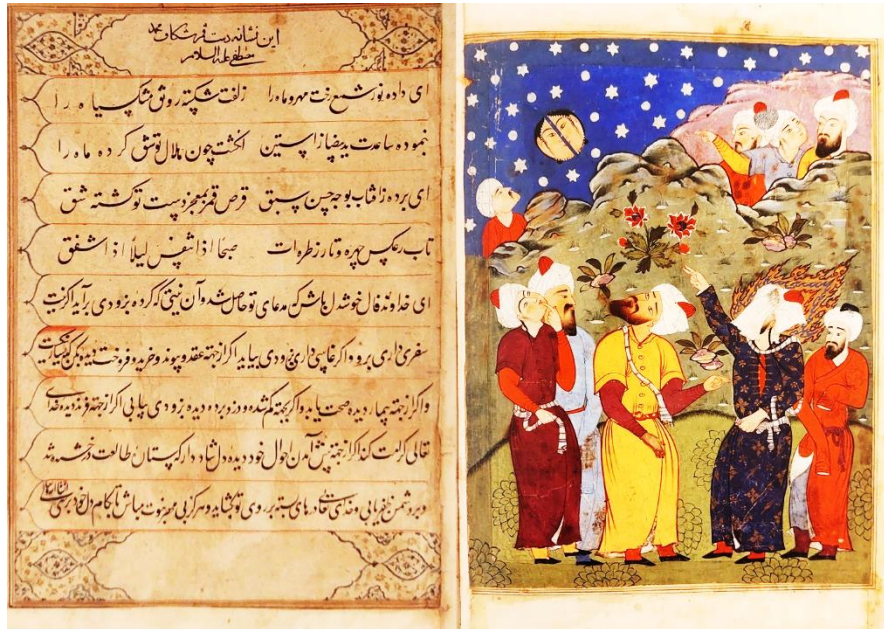 این نشانه دست قمر شکاف محمد
مصطفی علیه السلام
ای داده نور شمع رخت مهر و ماه را زلفت شکسته رونق مشک سیاه را
نموده ساعدت ید بیضا ز آستین انگشت چون هلال تو شق کرده ماه را
ای برده ز آفتاب بوجه حسن سبق قرص قمر بمعجز دست تو گشته شق
تاب ز عکس چهره و تار ز طره ات صبحا اذا تنفس لیلا اذا اتسق
ای خداوند فال خوشدل باش که مدعای تو حاصل شد و آن نیتی که کرده بزودی برآید اگر نیت
سفری داری برو و اگر غایبی داری بزودی بیاید اگر از جهة عقد و پیوند و خرید و فروخت دیده بکن که مبارکست
و اگر از جهة بیمار دیده صحت یابد و اگر بجهة گم شده و دزد برده دیده بزودی یابی اگر از جهة فرزند دیده خدای
تعالی کرامت کند اگر از جهة پیش آمدن احوال خود دیده دل شاد دار که ستاره طالعت درخشنده شد
و بر دشمن ظفر یابی و خدای تعالی درهای بسته بر روی تو بگشاید و هرگز بی مهر نبوت مباش تا بکام دل خود برسی